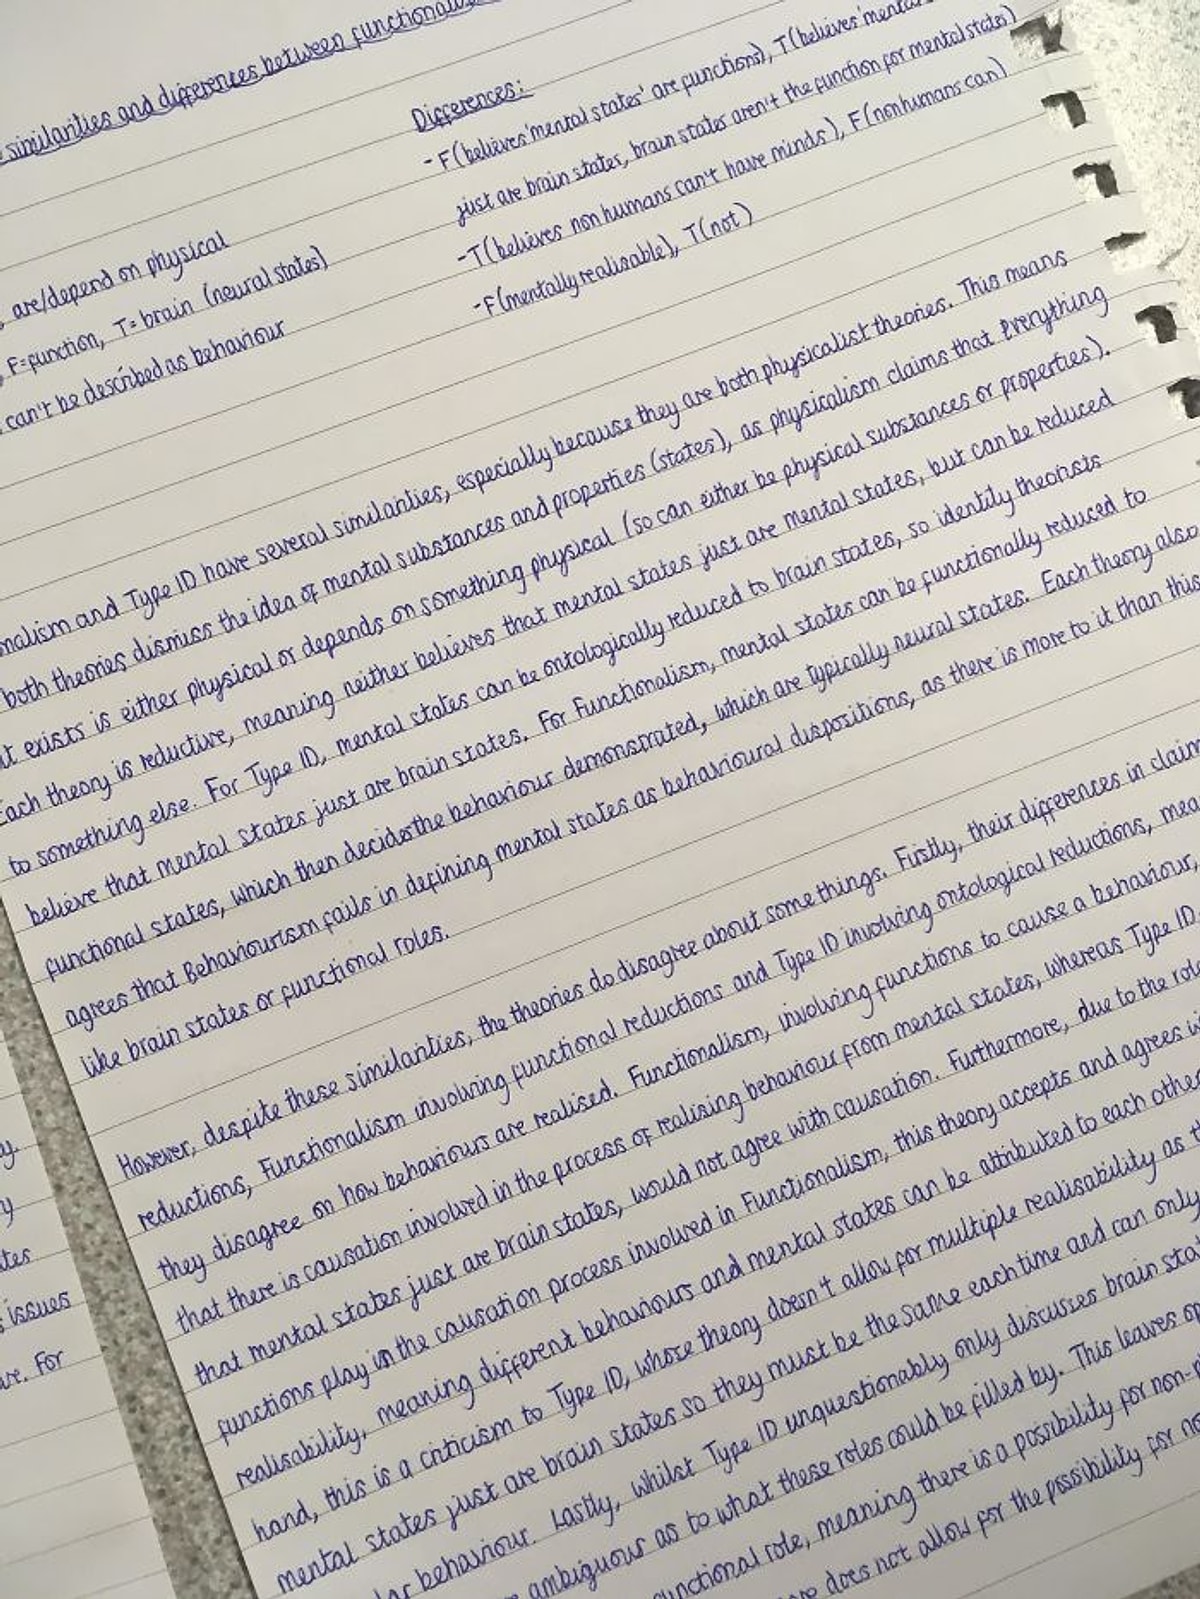 similarities and differences between functional
Differences:
- F (believes 'mental states' are functions), T (believes 'mental
just are brain states, brain states aren't the function for mental states)
- T (believes non humans can't have minds), F (non humans can)
- F (mentally realisable), T (not)
are/depend on physical
F=function, T=brain (neural states)
can't be described as behaviour
nalism and Type ID have several similarities, especially because they are both physicalist theories. This means
both theories dismiss the idea of mental substances and properties (states), as physicalism claims that everything
exists is either physical or depends on something physical (so can either be physical substances or properties).
Each theory is reductive, meaning neither believes that mental states just are mental states, but can be reduced
to something else. For Type ID, mental states can be ontologically reduced to brain states, so identity theorists
believe that mental states just are brain states. For Functionalism, mental states can be functionally reduced to
functional states, which then decides the behaviour demonstrated, which are typically neural states. Each theory also
agrees that Behaviourism fails in defining mental states as behavioural dispositions, as there is more to it than this
like brain states or functional roles.
However, despite these similarities, the theories do disagree about some things. Firstly, their differences in claim
reductions, Functionalism involving functional reductions and Type ID involving ontological reductions, mea
they disagree on how behaviours are realised. Functionalism, involving functions to cause a behaviour,
that there is causation involved in the process of realising behaviour from mental states, whereas Type ID
that mental states just are brain states, would not agree with causation. Furthermore, due to the role
functions play in the causation process involved in Functionalism, this theory accepts and agrees wi
realisability, meaning different behaviours and mental states can be attributed to each other
hand, this is a criticism to Type ID, whose theory doesn't allow for multiple realisability as th
mental states just are brain states so they must be the same each time and can only
lar behaviour. Lastly, whilst Type ID unquestionably only discusses brain stat
ambiguous as to what these roles could be filled by. This leaves op
unctional role, meaning there is a possibility for non-
does not allow for the possibility for no
y.
y
tes
issues
re. For